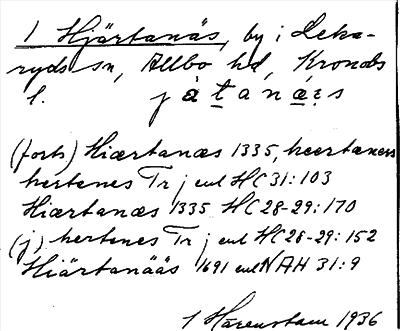 1 Hjärtanäs, by i Leka-
ryds sn, Allbo hd, Kronobs
l. jàtanä́s
(forts) Hiærtanæs 1335, heertænes
hertenes Tr j enl HC 31:103
Hiærtanæs 1335 HC 28-29:170
(j) hertenes Tr j enl HC 28-29:152
Hiärtanääs 1691 enl NAH 31:9
1 Härenstam 1936